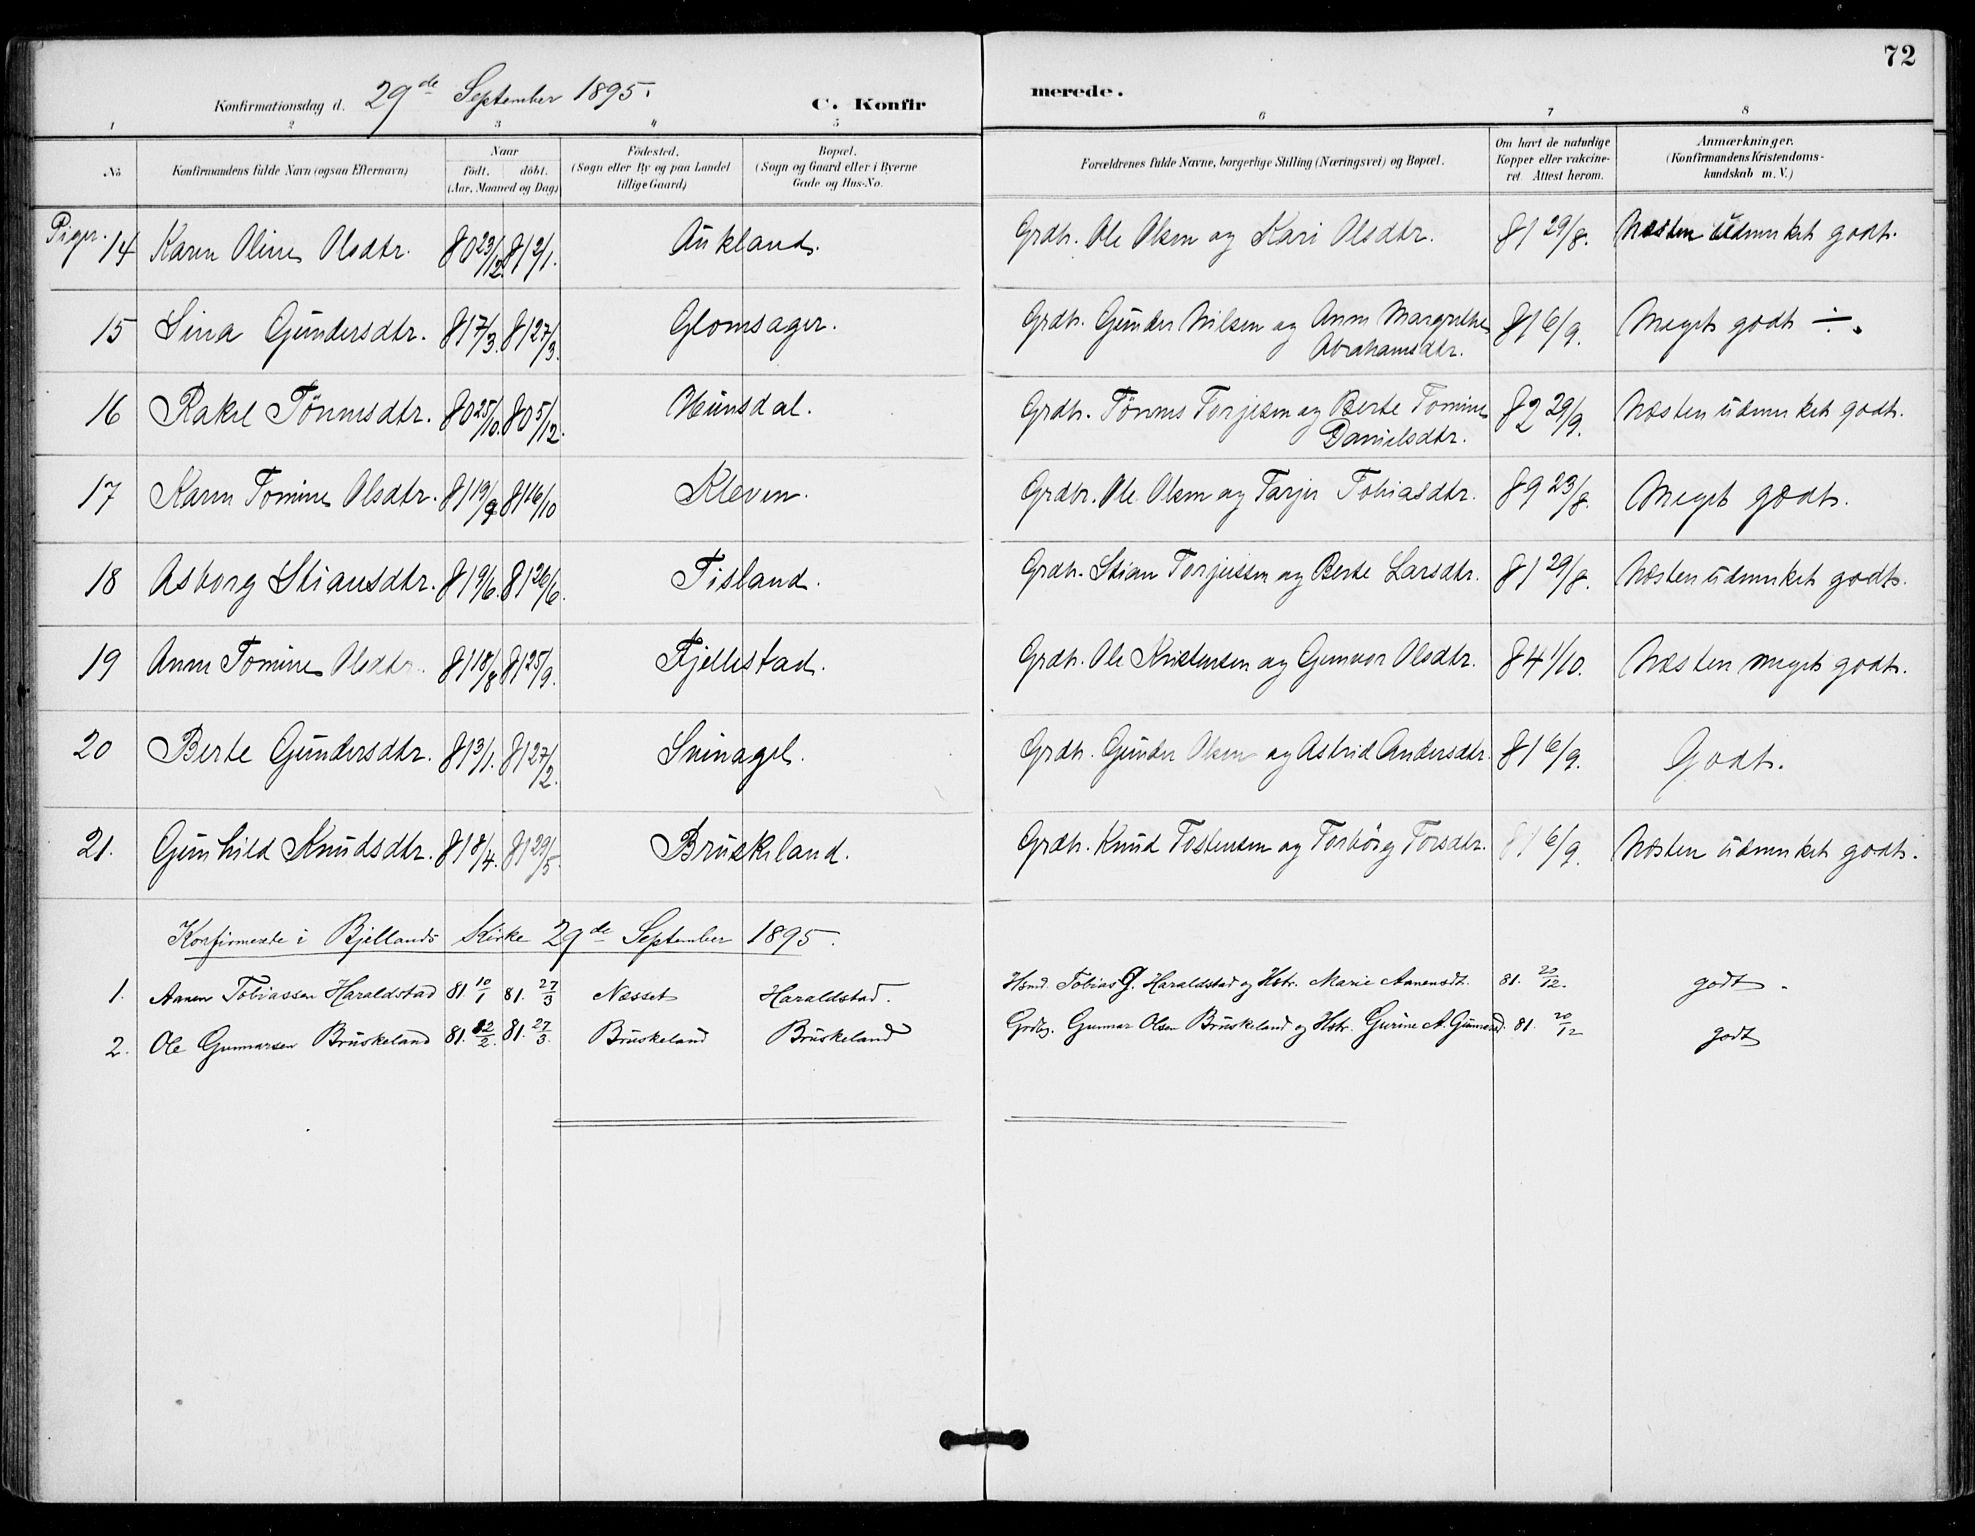 72
Konfirmationsdag d. 29de September 1895. C. Konfirmerede.
1 2 3 4 5 6 7 8
No. Konfirmandens fulde Navn (ogsaa Efternavn) Naar født. døbt. (Aar, Maaned og Dag) Fødested. (Sogn eller By og paa Landet tillige Gaard) Bopæl. (Sogn og Gaard eller i Byerne Gade og Hus-No. Forældrenes fulde Navne, borgerlige Stilling (Næringsvei) og Bopæl. Om havt de naturlige Kopper eller vakcineret. Attest herom. Anmærkninger. (Konfirmandens Kristendomskundskab m. V.)
Piger.
14 Karen Oline Olsdtr. 80 23/12. 81 2/1. Aukland. Grdbr. Ole Olsen og Kari Olsdtr. 81 29/8. Næsten udmerket godt.
15 Sina Gundersdtr. 81 7/3. 81 27/3. Glomsager. Grdbr. Gunder Nilsen og Anne Margrethe Abrahamsdtr. 81 6/9. Meget godt ÷.
16 Rakel Tønnesdtr. 80 25/10. 80 5/12. Hunsdal. Grdbr. Tønnes Torjesen og Berte Tomine Danielsdtr. 82 29/9. Næsten udmerket godt.
17 Karen Tomine Olsdtr. 81 19/9 81 16/10 Kleven. Grdbr. Ole Olsen og Tarjer Tobiasdtr. 89 23/8. Meget godt.
18 Asborg Stiansdtr. 81 9/6. 81 26/6. Tisland. Grdbr. Stian Torjussen og Berte Larsdtr. 81 29/8. Næsten udmerket godt.
19 Anne Tomine Olsdtr. 81 18/8 81 25/9. Fjellestad. Grdbr. Ole Kristensen og Gunvor Olsdtr. 84 1/10. Næsten meget godt.
20 Berte Gundersdtr. 81 3/1. 81 27/2. Svinagel. Grdbr. Gunder Olsen og Astrid Andersdtr. 81 6/9. Godt.
21. Gunhild Knudsdtr. 81 8/4. 81 29/5. Bruskeland. Grdbr. Knud Tostensen og Torbørg Torsdtr. 81 6/9. Næsten udmerket godt.
Konfirmerede i Bjellands Kirke 29de September 1895.
1. Aanen Tobiassen Haraldstad 81. 10/1 81. 27/3 Næsset Haraldstad. Hsmd. Tobias G. Haraldstad og Hstr. Marie Aanensdt. 81. 20/12. godt.
2. Ole Gunnarsen Bruskeland 81. 22/2. 81. 27/3. Bruskeland Bruskeland Grdbg. Gunnar Olsen Bruskeland og Hstr. Gurine A. Gunnarsd. 81. 20/12 godt